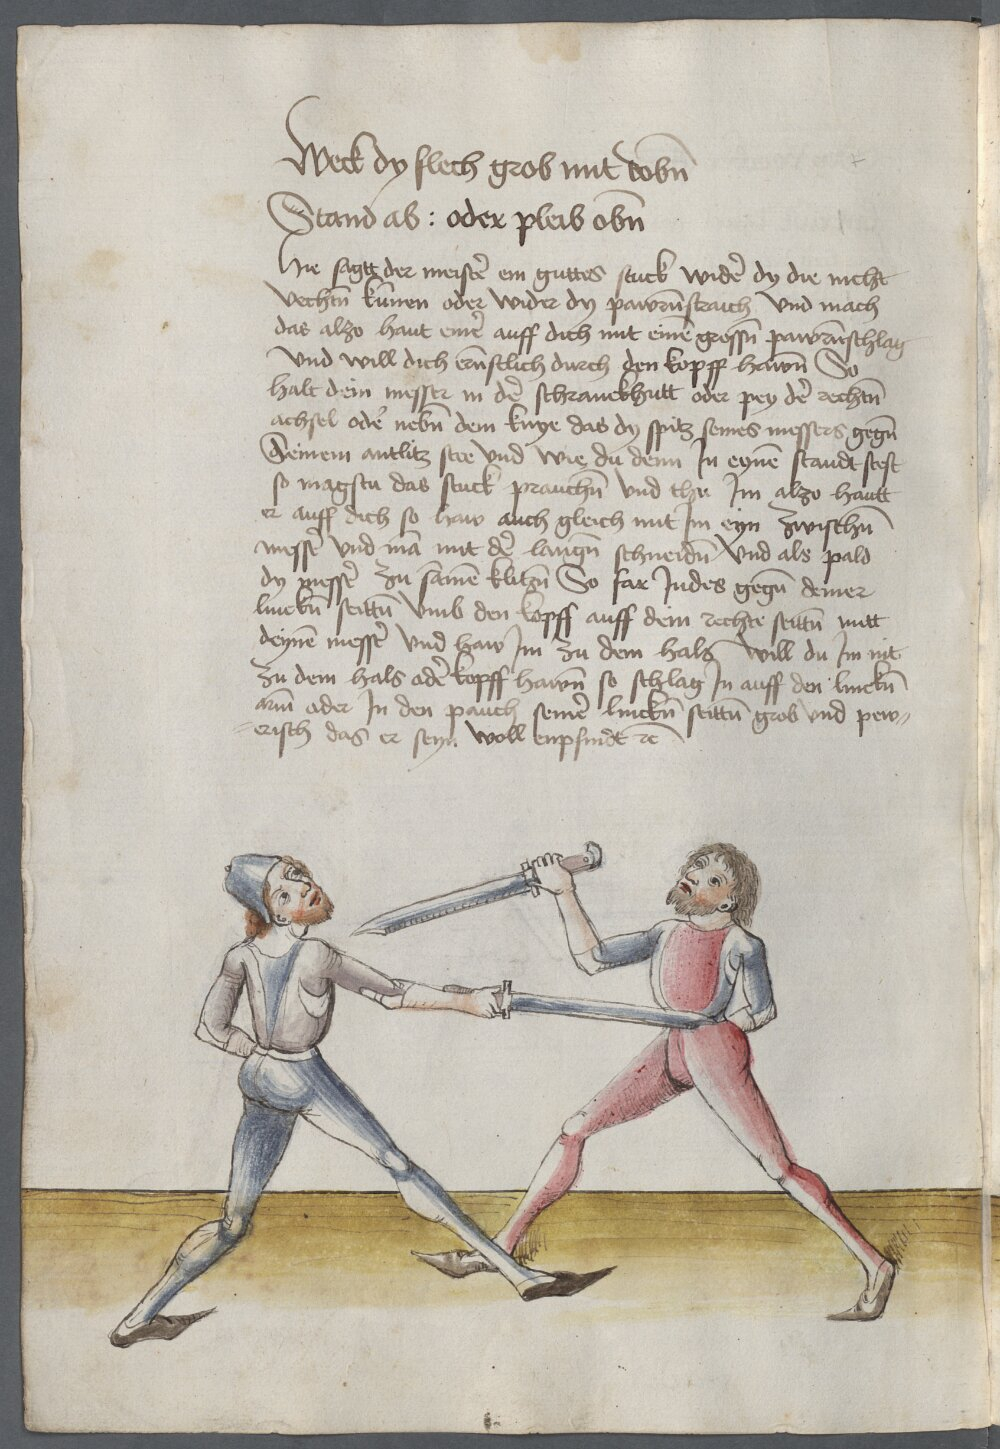 Weck dy flech grob mit tobn̄
Stand ab : oder pleib obn̄
Hie sagtt der meistē ein guttes stuck widē dy die nicht
vechtn̄ kūnen oder wider dy pawrn̄straich vnd mach
das alzo haut einē auff dich mit einē grossn̄ pawrn̄schlag
vnd will dich ern̄stlich durch den kopff hawn̄ So
halt dein messer in dē schranckhutt oder pey dē rechtn̄
achsel odē nebn̄ dem knye das dy spitz seines messers gegn̄
deinem antlitz stee vnd wie du denn Jn eynē standt stest
so magstu das stuck prauchn̄ vnd thu Jm alzo hautt
er auff dich so haw auch gleich mit Jm eyn zwischn̄
messē vnd mā mit dē langn̄ schneidn̄ vnd als pald
dy messē zu sāmē klitzn̄ So far Jndes gegn̄ deiner
linckn̄ seittn̄ vmb den kopff auff dein rechte seittn̄ mitt
deynē messē vnd haw Jm zu dem hals will du Jm nit
zu dem hals odē kopff hawn̄ so schlag Jn auff den linckn̄
arm oder Jn den pauch seinē linckn̄ seittn̄ grob vnd pew„
„erisch das er seyn woll enpfindt rē